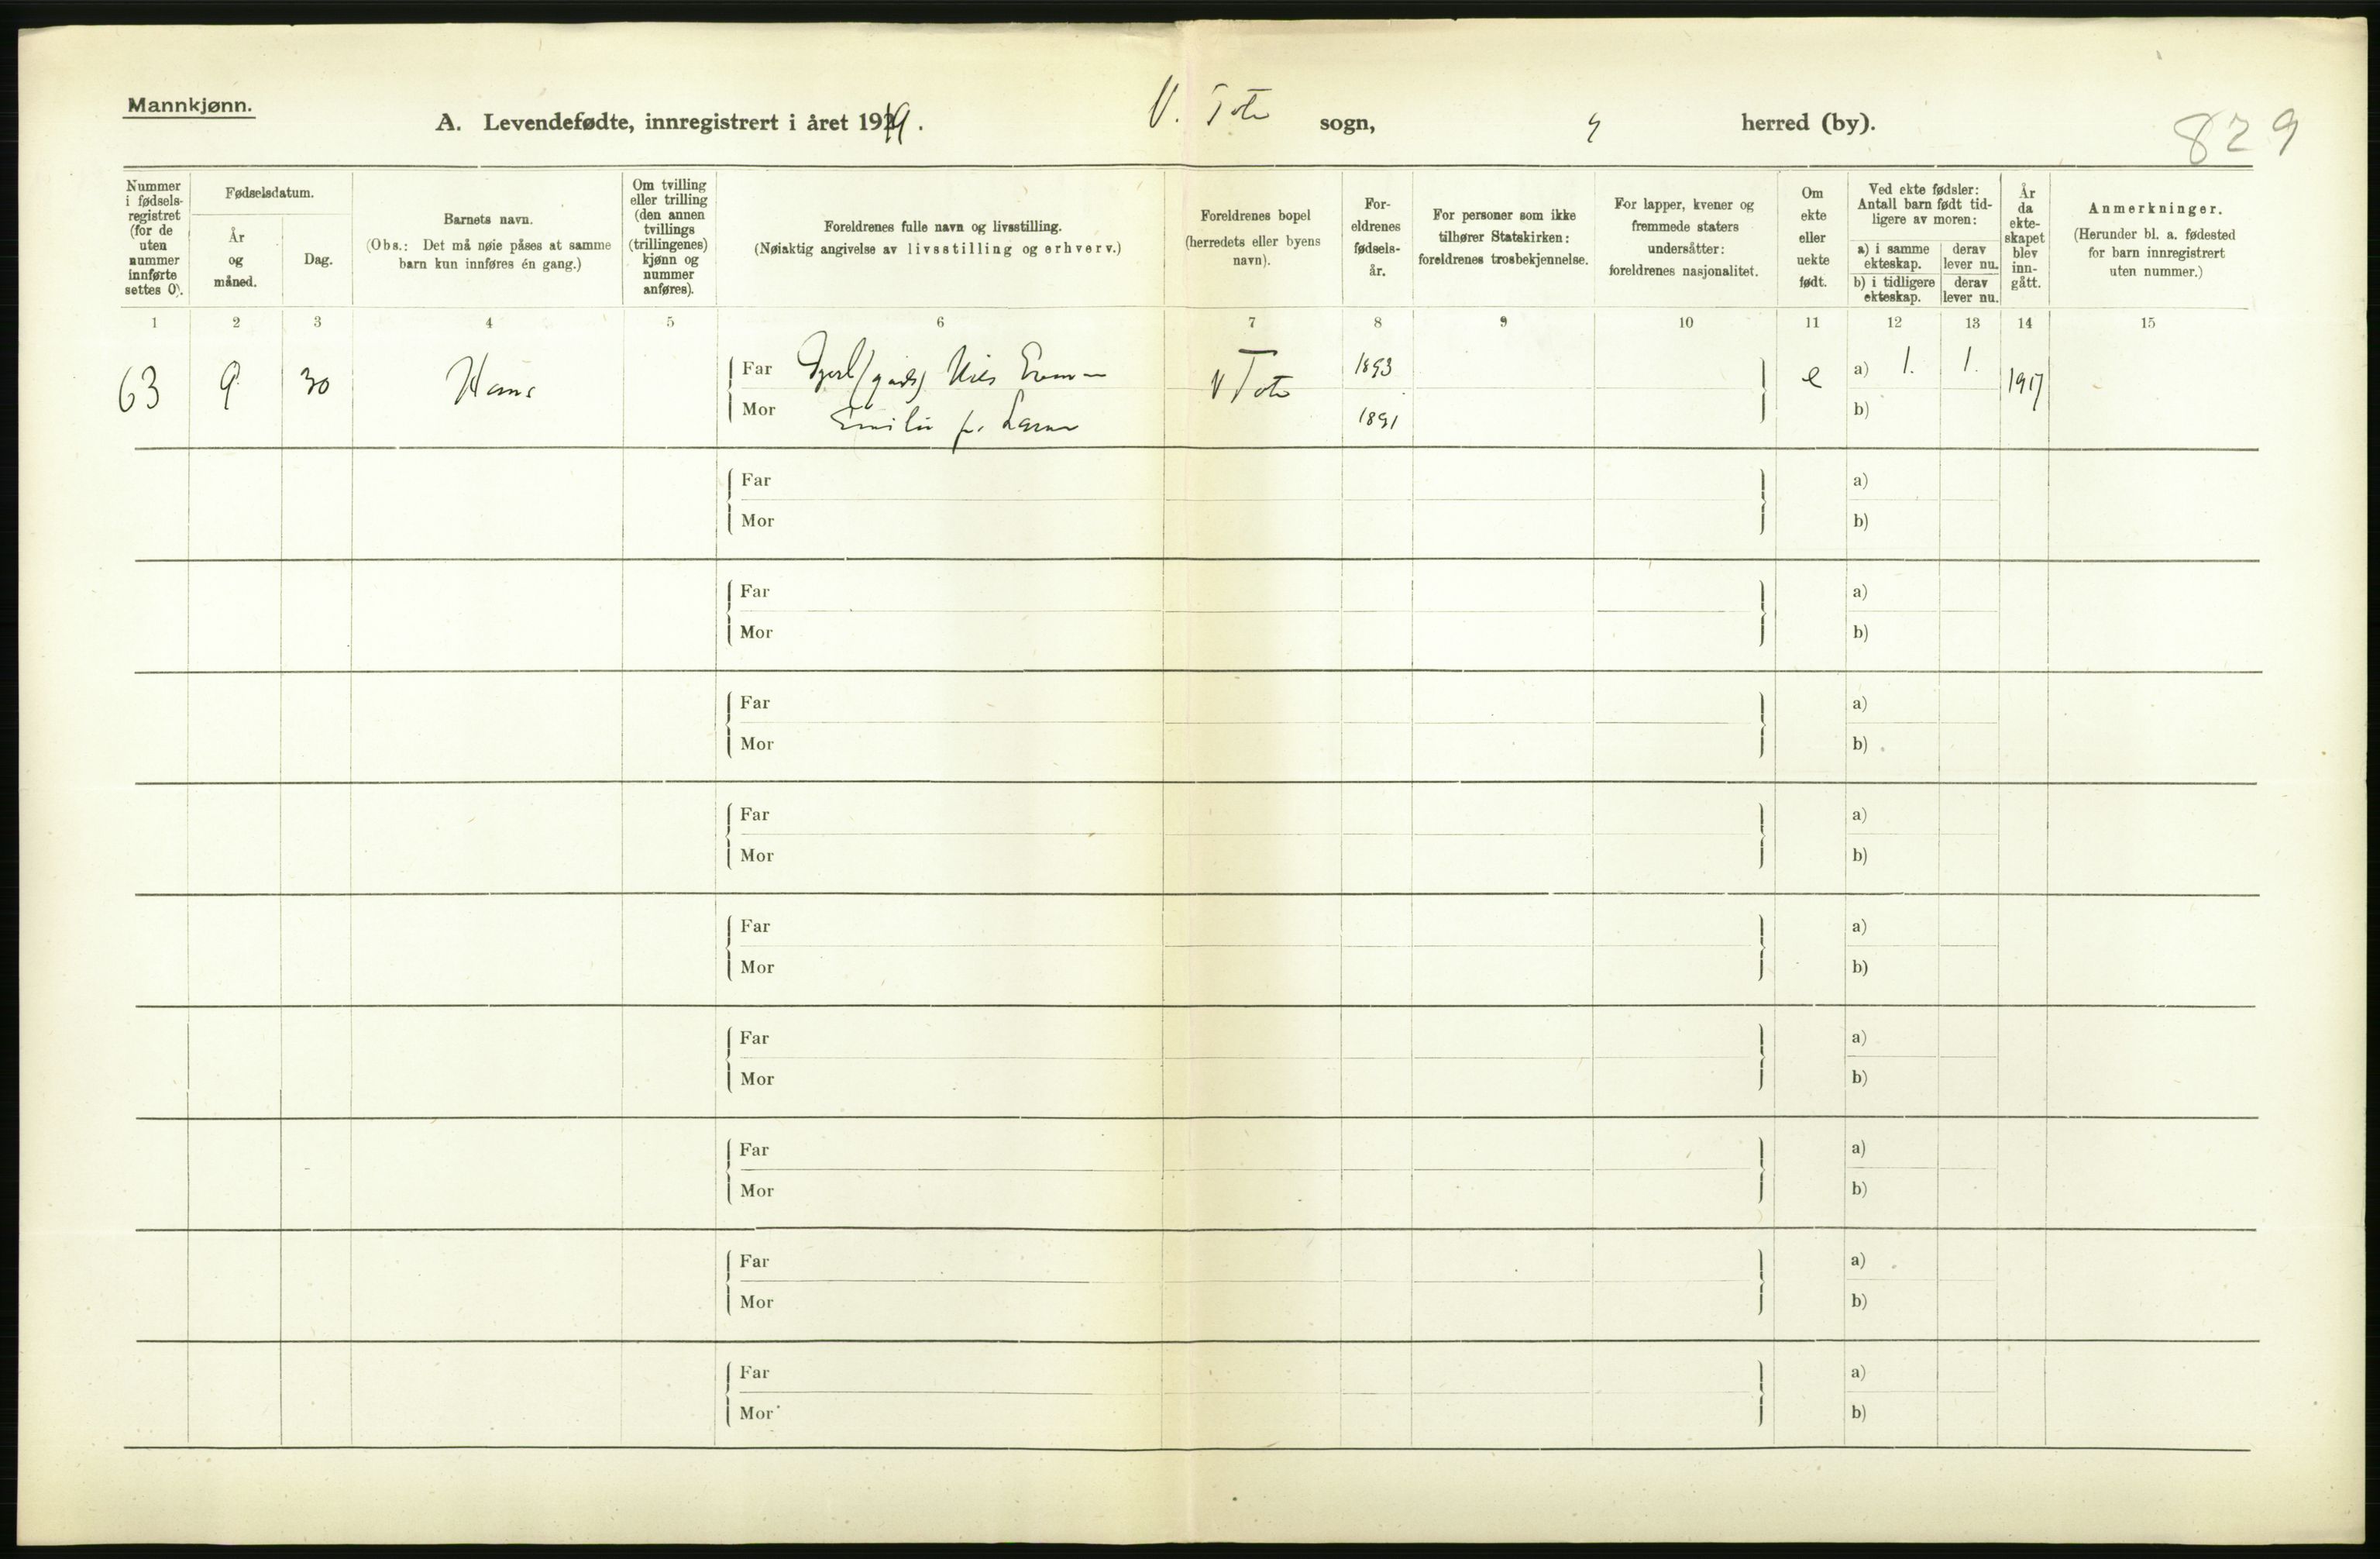 Mannkjønn.
A. Levendefødte, innregistrert i året 1919. V. Toten sogn, herred (by).
829
Nummer i fødsels- registret (for de uten nummer innførte settes 0).
Fødselsdatum.
År og måned.
Dag.
Barnets navn.
(Obs.: Det må nøie påses at samme barn kun innføres én gang.)
Om tvilling eller trilling (den annen tvillings (trillingenes) kjønn og nummer anføres).
Foreldrenes fulle navn og livsstilling.
(Nøiaktig angivelse av livsstilling og erhverv.)
Foreldrenes bopel (herredets eller byens navn).
For- eldrenes fødsels- år.
For personer som ikke tilhører Statskirken: foreldrenes trosbekjennelse.
For lapper, kvener og fremmede staters undersåtter: foreldrenes nasjonalitet.
Om ekte eller uekte født.
Ved ekte fødsler: Antall barn født tid- ligere av moren:
a) i samme ekteskap.
derav lever nu.
b) i tidligere ekteskap.
derav lever nu.
År da ekte- skapet blev inn- gått.
Anmerkninger.
(Herunder bl. a. fødested for barn innregistrert uten nummer.)
1 2 3 4 5 6 7 8 9 10 11 12 13 14 15
63 9 30 Hans Far Nils V Toten 1893 e a) 1. 1. 1917
Mor Emilie f. Larsen 1891 b)
Far a)
Mor b)
Far a)
Mor b)
Far a)
Mor b)
Far a)
Mor b)
Far a)
Mor b)
Far a)
Mor b)
Far a)
Mor b)
Far a)
Mor b)
Far a)
Mor b)